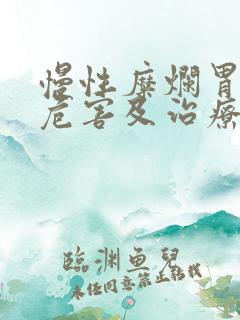 慢性糜爛胃
危害及治療
臨渊鱼兒
未经同意禁止转载